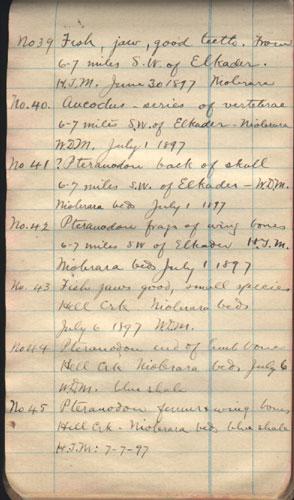 No 39 Fish, jaw, good teeth. From
6-7 miles S.W. of Elkader.
H.T.M. June 30 1897 Niobrara
No. 40. - series of vertebrae
6-7 miles S.W. of Elkader - Niobrara
W.D.M. July 1 1897
No 41 ? Pteranodon back of skull
6-7 miles S.W. of Elkader - W.D.M.
Niobrara beds July 1 1897
No. 42 Pteranodon frags of wing bones
6-7 miles SW of Elkader H.T.M.
Niobrara beds July 1 1897
No. 43 Fish jaws good, small species
Hell Crk Niobrara beds
July 6 1897 W.D.M.
No 44 Pteranodon end of limb bone
Hell Crk Niobrara beds July 6
W.D.M. blue shale
No 45 Pteranodon femur & wing bones
Hell Crk - Niobrara beds blue shale
H.T.M: 7-7-97